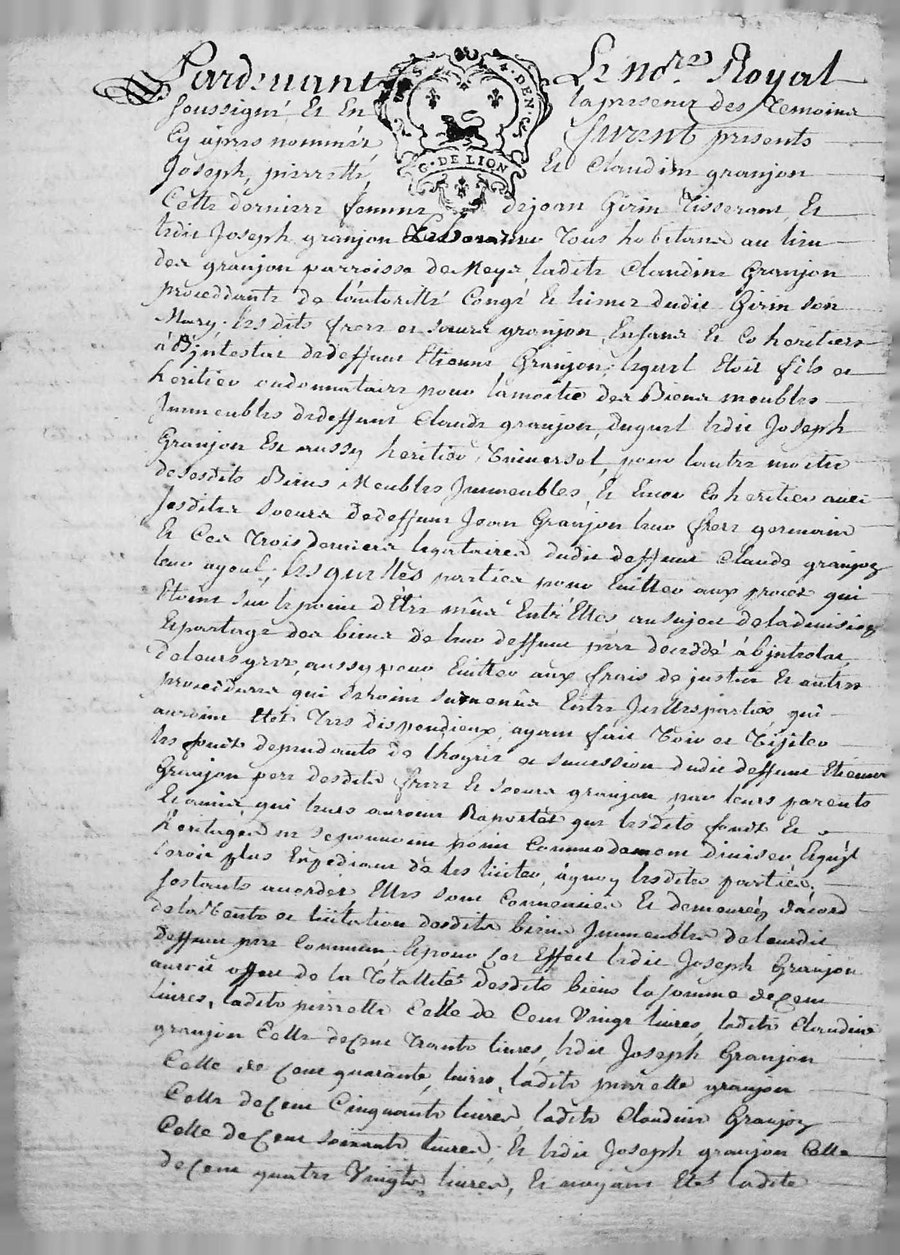 Pardevant Le no.re Royal
soussigné Et En la presence des Temoins
Cy âpres nommés furent presents
Joseph, pierrette Et Claudine granjon
Cette derniere femme de jean Girin Tisserant, Et
ledit Joseph granjon Laboureur Tous habitans au lieu
des granjon parroisse de Meys ladite Claudine Granjon
proceddante de l'autorité Congé Et licence dudit Girin son
Mary; lesdits frere et soeurs granjon, Enfans Et Coheritiers
à Bintestat dedeffunt Etienne Granjon, lequel Etoit fils et
heritier oudonnataire pour lamoitié des Biens meubles
Immeubles dedeffunt Claude granjon, duquel ledit Joseph
Granjon Est aussy heritier Universel, pour lautre moitié
desesdits Biens Meubles Immeubles, Et Encor Coheritier avec
sesdites soeurs dedeffunt Jean Granjon leur frere germain
Et Ces Trois derniers legataires dudit deffunt Claude granjon
leur ayeul; lesquelles parties pour Eviter aux proces qui
Etoient sur lepoint d'Etre mûs Entr'Elles ausujet deladivision
Epartage des biens de leur deffunt pere decedé àbintestat,
aussy pour Eviter aux frais de justice Et autres
proceddures qui seroient survenûs Entre lesdites parties, qui
auroint Eté Tres dispendieux, ayant fait Voir et Visiter
les fonds dependants de lhoyrie et succession dudit deffunt Etienne
Granjon pere desdits frere Et soeurs granjon par leurs parents
Et amis qui leurs auroient Raportés que lesdits fonds Et
heritages ne sepouvoient point Commodement diviser Equ'il
seroit plus Expedient de les liciter, àquoy lesdites parties
sestants accordés, Elles sont Convenues Et demeurés d'acord
delaVente et licitation desdits biens Immeubles deleurdit
deffunt pere Commun, Epour Cet Effect ledit Joseph Granjon
auroit offert de la Totallité desdits biens la somme decent
livres, ladite pierrette Celle de Cent Vingt livres, ladite Claudine
granjon Celle decent Trante livres, ledit Joseph Granjon
Celle de cent quarante livres, ladite pierrette granjon
Celle decent Cinquante livres, ladite Claudine Granjon
Celle decent soixante livres, Et ledit Joseph granjon Celle
decent quatre Vingts livres, Et nayant Eté ladite
4. DEN.
G. DE LION